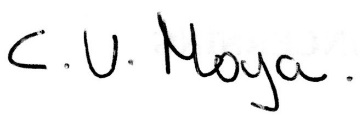 C. V. Moya.